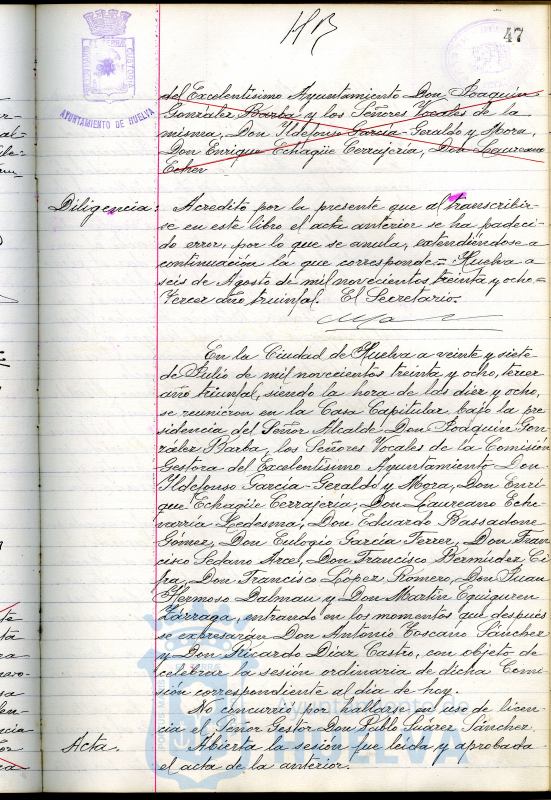 47
AYUNTAMIENTO DE HUELVA
del Excelentísimo Ayuntamiento Don Joaquín
González Barba y los Señores Vocales de la
misma, Don Ildefonso García-Geraldo y Mora,
Don Enrique Echagüe Cerrajería, Don Laureano
Echev
Diligencia: Acredito por la presente que al transcribir-
se en este libro el acta anterior se ha padeci-
do error, por lo que se anula, extendiéndose a
continuación la que corresponde = Huelva a
seis de Agosto de mil novecientos treinta y ocho =
Tercer año triunfal. El Secretario.
En la Ciudad de Huelva a veinte y siete
de Julio de mil novecientos treinta y ocho, tercer
año triunfal, siendo la hora de las diez y ocho,
se reunieron en la Casa Capitular bajo la pre-
sidencia del Señor Alcalde Don Joaquín Gon-
zález Barba, los Señores Vocales de la Comisión
Gestora del Excelentísimo Ayuntamiento Don
Ildefonso García-Geraldo y Mora, Don Enri-
que Echagüe Cerrajería, Don Laureano Eche-
varría Ledesma, Don Eduardo Bassadone
Gómez, Don Eulogio García Ferrer, Don Fran-
cisco Sedano Arce, Don Francisco Bermúdez Ci-
pa, Don Francisco López Romero, Don Juan
Hermoso Dalmau y Don Martín Eguiguren
Zárraga, entrando en los momentos que después
se expresarán Don Antonio Toscano Sánchez
y Don Ricardo Díaz Castro, con objeto de
celebrar la sesión ordinaria de dicha Comi-
sión correspondiente al día de hoy.
No concurrió por hallarse en uso de licen-
cia el Señor Gestor Don Pablo Suárez Sánchez.
Acta. Abierta la sesión fue leída y aprobada
el acta de la anterior.